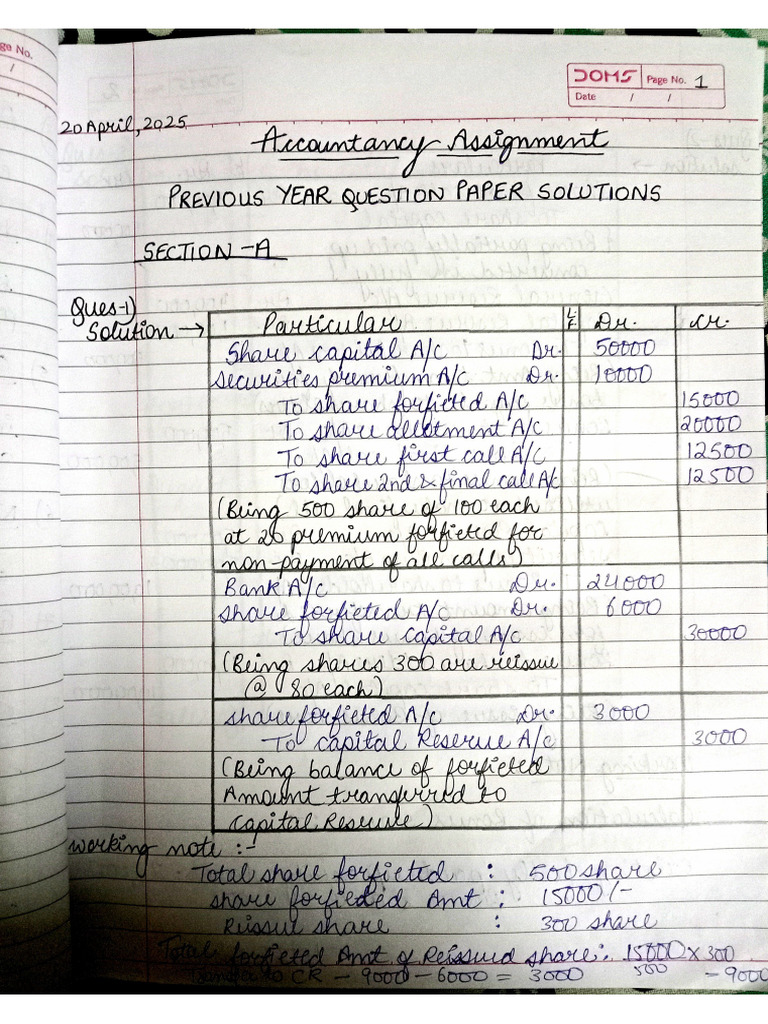 ge No.
/
DOMS Page No. 1
Date / /
20 April, 2025
Accountancy Assignment
PREVIOUS YEAR QUESTION PAPER SOLUTIONS
SECTION-A
Ques-1)
Solution → Particular L.F. Dr. Cr.
Share capital A/c Dr. 50000
securities premium A/c Dr. 10000
To share forfieted A/c 15000
To share allotment A/c 20000
To share first call A/c 12500
To share 2nd & final call A/c 12500
(Being 500 share of 100 each
at 20 premium forfieted for
non-payment of all calls)
Bank A/c Dr. 24000
share forfieted A/c Dr. 6000
To share capital A/c 30000
(Being shares 300 are reissue
@ 80 each)
share forfieted A/c Dr. 3000
To capital Reserve A/c 3000
(Being balance of forfieted
Amount transferred to
capital Reserve)
working note :-
Total share forfieted : 500 share
share forfieted Amt : 15000/-
Reissue share : 300 share
Total forfieted Amt of Reissued share: 15000 × 300
500 - 9000
to CR - 9000 - 6000 = 3000